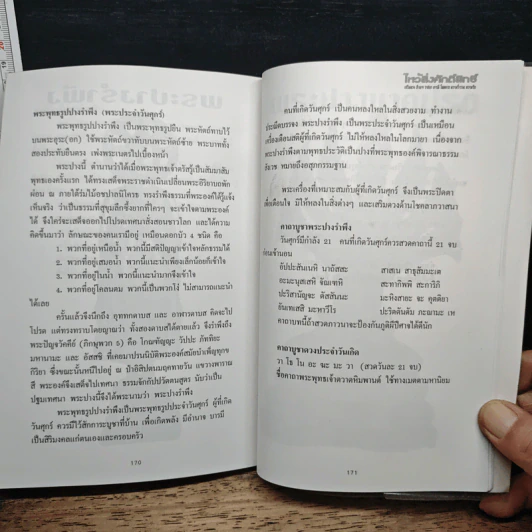 พระพุทธรูปปางรำพึง (พระประจำวันศุกร์)
พระพุทธรูปปางรำพึง เป็นพระพุทธรูปยืน พระหัตถ์ทาบไว้
บนพระอุระ(อก) ใช้พระหัตถ์ขวาทับบนพระหัตถ์ซ้าย พระบาททั้ง
สองประทับยืนตรง เพ่งพระเนตรไปเบื้องหน้า
พระปางนี้ ตำนานว่าได้เมื่อพระพุทธเจ้าตรัสรู้เป็นสัมมาสัม
พุทธเองครั้งแรก ได้ทรงเสด็จพระราชดำเนินเปลี่ยนพระอิริยาบถพัก
ผ่อน ณ ภายใต้ร่มไม้อชปาลนิโครธ ทรงรำพึงธรรมที่พระองค์ได้รู้แจ้ง
เห็นจริง ว่าเป็นธรรมที่สุขุมลึกซึ้งยากที่ใครๆ จะเข้าใจตามพระองค์
ได้ จึงใคร่จะเสด็จออกไปโปรดเทศนาสั่งสอนชาวโลก และได้ความ
คิดขึ้นมาว่า ลักษณะของคนเรามีอยู่ เหมือนดอกบัว 4 ชนิด คือ
1. พวกที่อยู่เหนือน้ำ พวกนี้มีสติปัญญาเข้าใจหลักธรรมได้
2. พวกที่อยู่เสมอน้ำ พวกนี้แนะนำเพียงเล็กน้อยก็เข้าใจ
3. พวกที่อยู่ในน้ำ พวกนี้แนะนำมากจึงเข้าใจ
4. พวกที่อยู่โคลนตม พวกนี้เป็นพวกโง่ ไม่สามารถแนะนำ
ได้เลย
ครั้นแล้วจึงนึกถึง อุททกดาบส และ อาฬารดาบส คิดจะไป
โปรด แต่ทรงทราบโดยญาณว่า ทั้งสองดาบสได้ตายแล้ว จึงรำพึงถึง
พระปัจวัคคีย์ (ภิกษุพวก 5) คือ โกณฑัญญะ วัปปะ ภัททิยะ
มหานามะ และ อัสสชิ ที่เคยมาปรนนิบัติพระองค์สมัยบำเพ็ญทุกข
กิริยา ซึ่งขณะนั้นหนีไปอยู่ ณ ป่าอิสิปตนมฤคทายวัน แขวงพาราณ
สี พระองค์จึงเสด็จไปเทศนา ธรรมจักกัปปวัตตนสูตร นับว่าเป็น
ปฐมเทศนา พระปางนี้จึงได้พระนามว่า พระปางรำพึง
พระพุทธรูปปางรำพึงเป็นพระพุทธรูปประจำวันศุกร์ ผู้ที่เกิด
วันศุกร์ ควรมีไว้สักการะบูชาที่บ้าน เพื่อเกิดพลัง มีอำนาจ บารมี
เป็นสิริมงคลแก่ตนเองและครอบครัว
170
ไหว้สิ่งศักดิ์สิทธิ์
คนที่เกิดวันศุกร์ เป็นคนหลงใหลในสิ่งสวยงาม ทำงาน
ประณีตบรรจง พระปางรำพึง เป็นพระประจำวันศุกร์ เป็นเหมือน
เครื่องเตือนสติผู้ที่เกิดวันศุกร์ ไม่ให้หลงใหลในโลกมายา เนื่องจาก
พระปางรำพึงตามพุทธประวัติเป็นปางที่พระพุทธองค์พิจารณาธรรม
สังเวช หมายถึงอสุภกรรมฐาน
พระเครื่องที่เหมาะสมกับผู้ที่เกิดวันศุกร์ จึงเป็นพระปิดตา
เพื่อเตือนใจ มิให้หลงในสิ่งต่างๆ และเสริมดวงด้านโชคลาภวาสนา
คาถาบูชาพระปางรำพึง
วันศุกร์มีกำลัง 21 คนที่เกิดวันศุกร์ควรสวดคาถานี้ 21 จบ
ก่อนเข้านอน
อัปปะสันเนหิ นาถัสสะ สาสะเน สาธุสัมมะเต
อะมะนุสเสหิ จัณเฑหิ สะทากิพพิ สะการิภิ
ปะริสานัญจะ ตัสสันนะ มะหิงสายะ จะ คุตติยา
ยันเทเสสิ มะหาวีโร ปะริตตันตัม ภะณามะ เห
คาถาบทนี้ถ้าสวดภาวนาจะป้องกันภูติผีปีศาจได้ดีนัก
คาถาบูชาดวงประจำวันเกิด
วา โธ โน อะ มะ มะ วา (สวดวันละ 21 จบ)
ชื่อคาถาพระพุทธเจ้าตวาดหิมพานต์ ใช้ทางเมตตามหานิยม
171